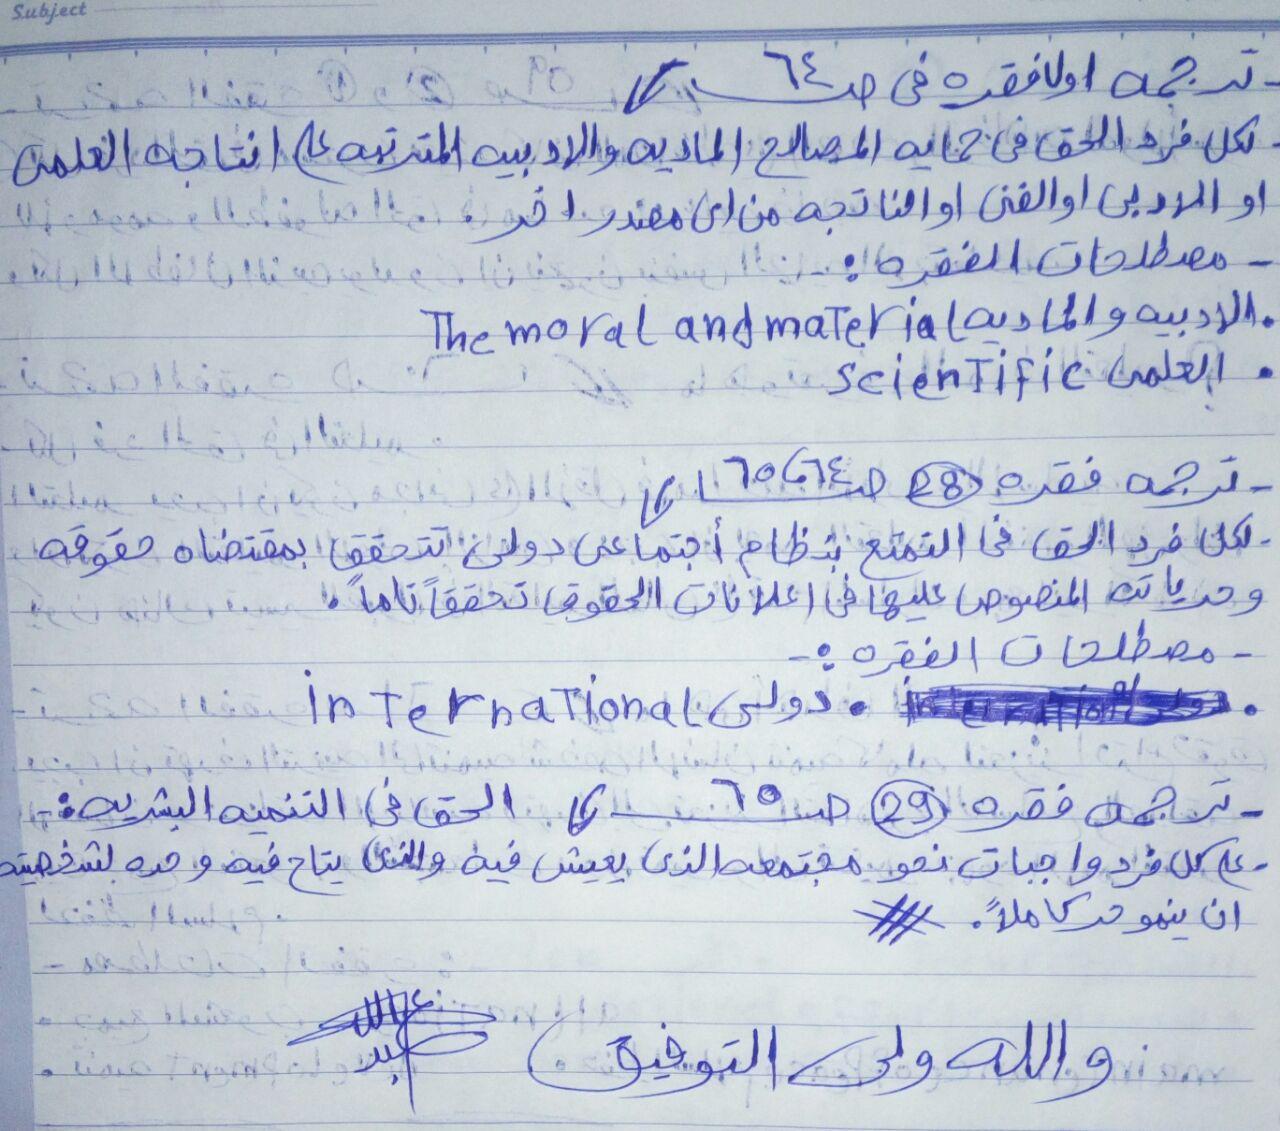 Subject
- ترجمه اولا فقره فى صـ ٦٤
- لكل فرد الحق فى حمايه المصالح الماديه والادبيه المترتبه على انتاجه العلمى
او الادبى او الفنى او الناتجه من اى مصدر اخر
- مصطلحات الفقره :-
• الادبيه والماديه The moral and material
• العلمى scientific
- ترجمه فقره (28) صـ ٦٤، ٦٥
- لكل فرد الحق فى التمتع بنظام أجتماعى دولى تتحقق بمقتضاه حقوقه
وحرياته المنصوص عليها فى اعلانات الحقوق تحققاً تاماً.
- مصطلحات الفقره :-
• دولى international
- ترجمه فقره (29) صـ ٦٥ الحق فى التنميه البشريه :-
- على كل فرد واجبات نحو مجتمعه الذى يعيش فيه والذى يتاح فيه وحده لشخصيته
ان ينمو حر كاملاً.
والله ولى التوفيق